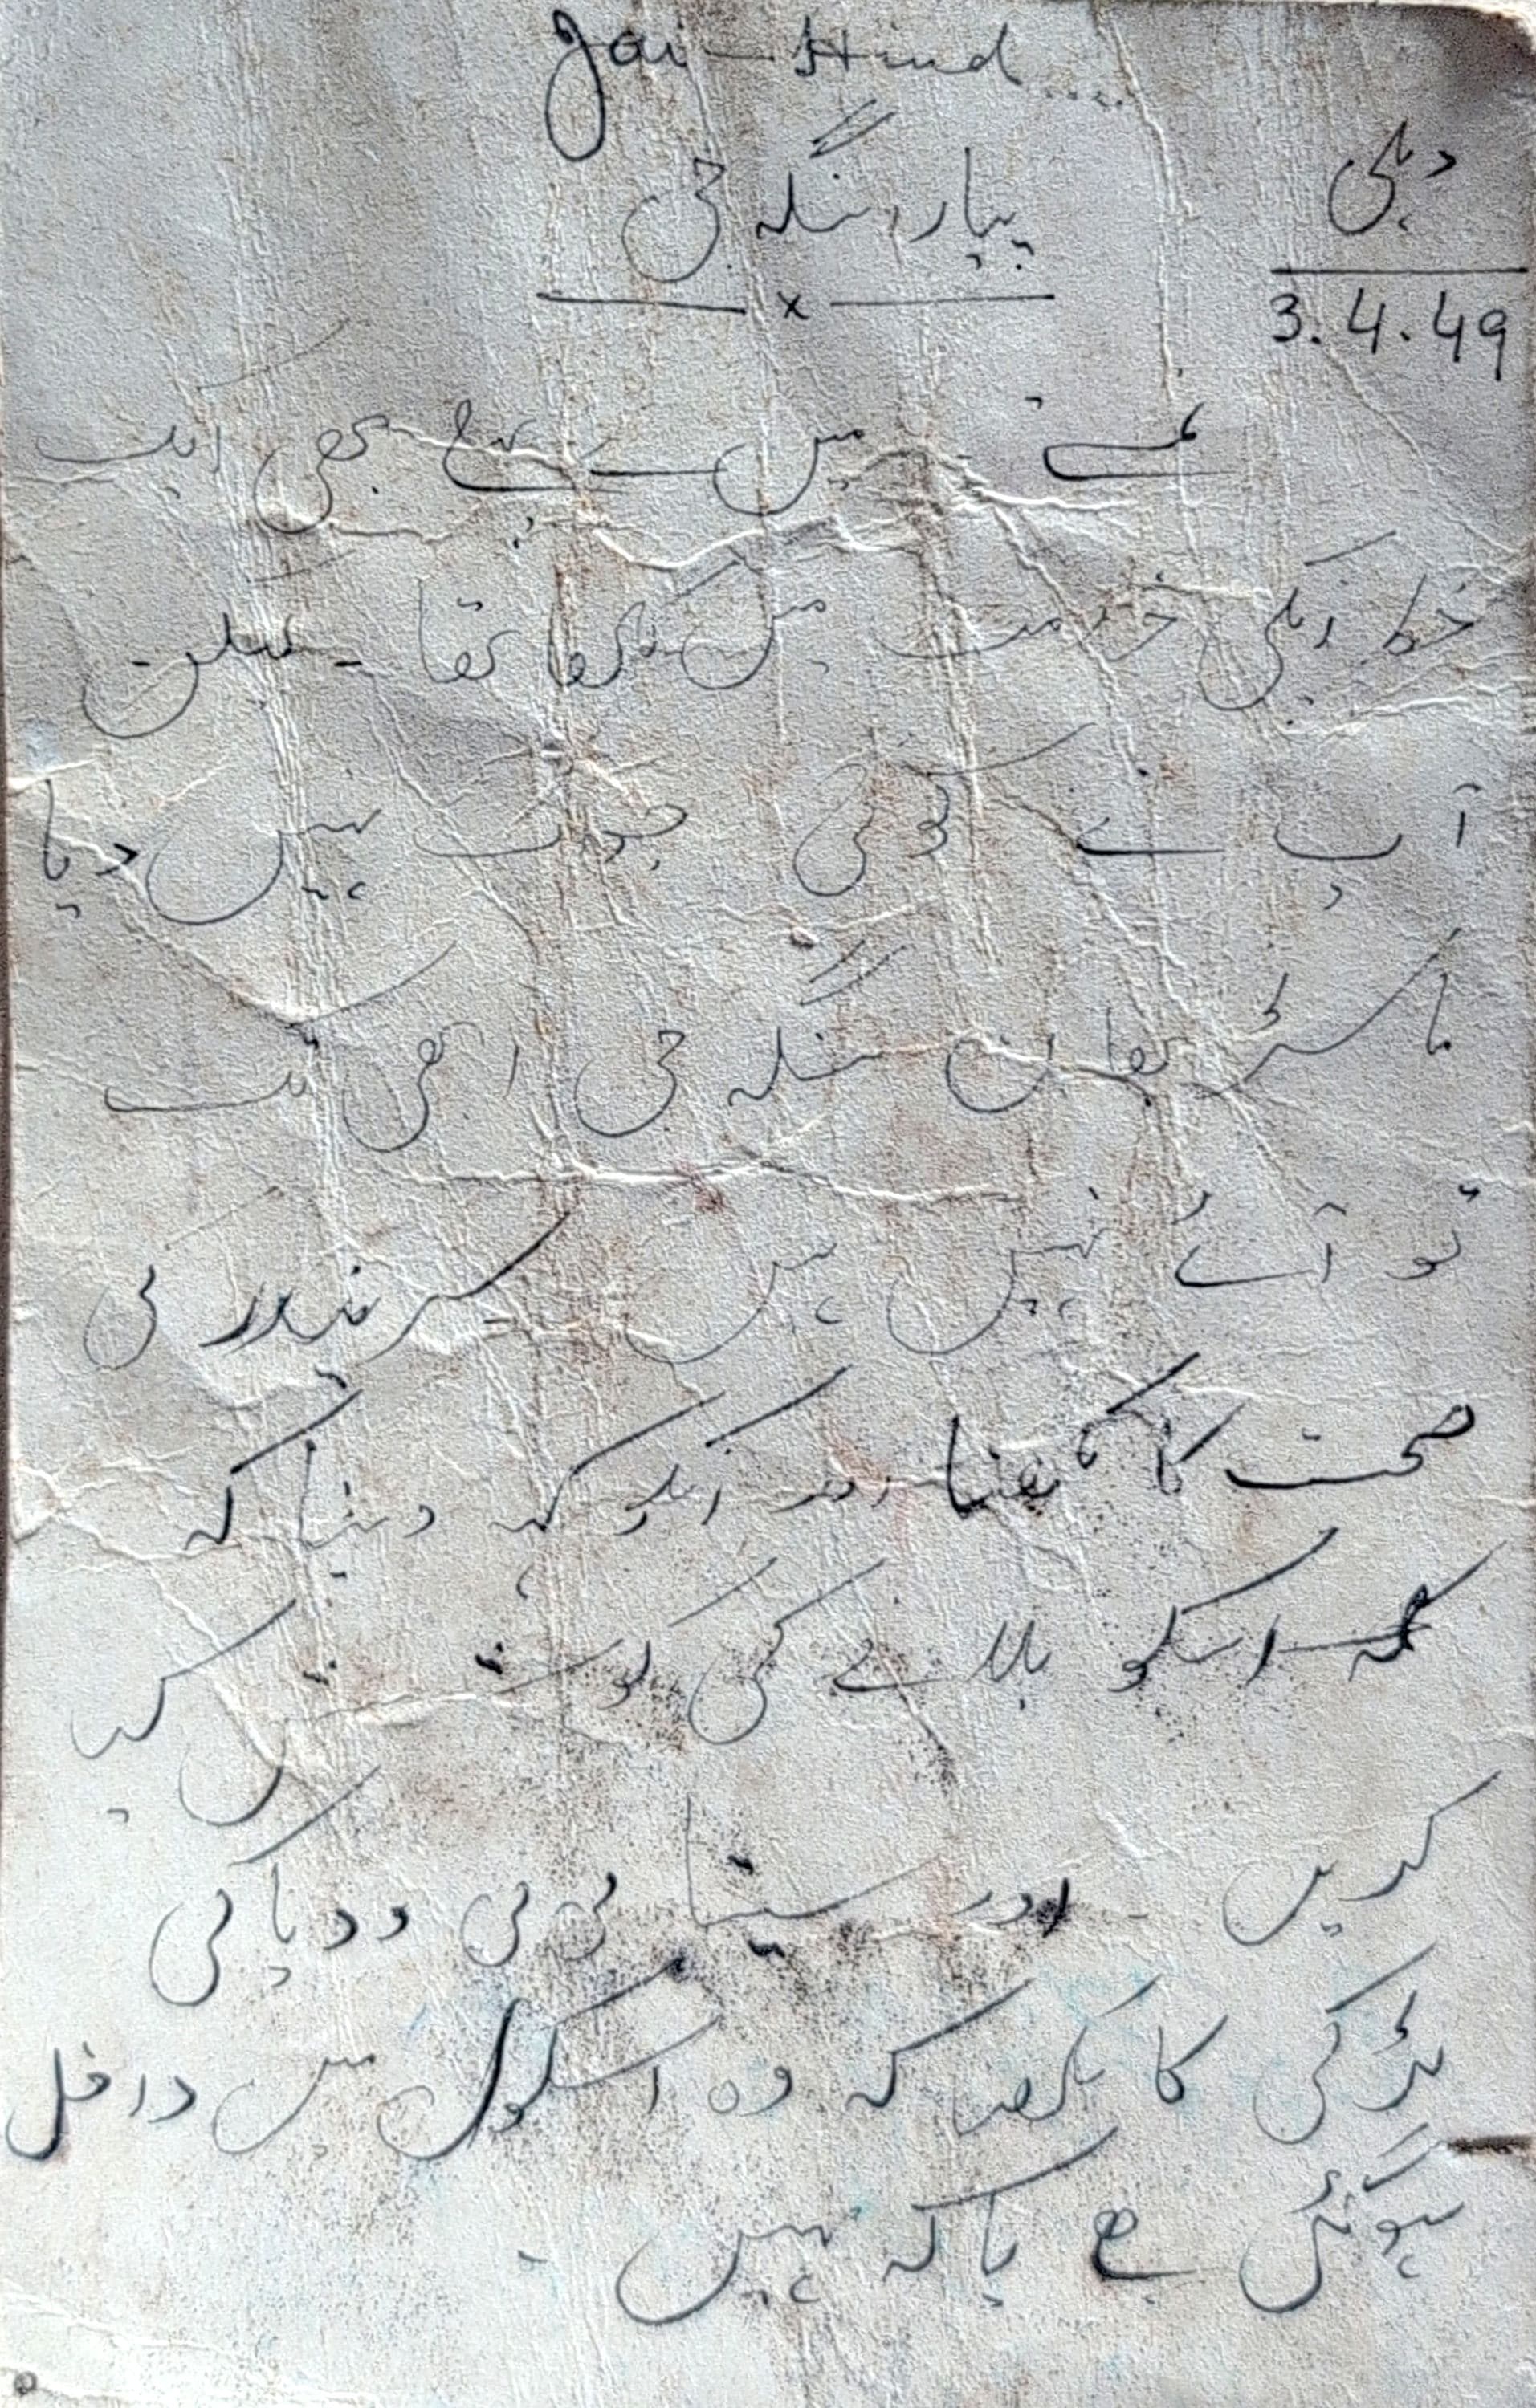 Jai-Hind.....
دہلی
3.4.49
پیار سنگھ جی
x
میں نے پہلے بھی ایک
خط آپکی خدمت میں لکھا تھا - لیکن
آپ نے کوئی جواب نہیں دیا
ماسٹر بھان سنگھ جی ابھی تک
تو آئے نہیں ہیں سریندر کی
صحت کا لکھنا اور انکو کہہ دینا کہ
کہ اسکو بلانے کی کوشش کیا
کریں - اور سیتا بی بی ودیا کی
لڑکی کا لکھنا کہ وہ اسکول میں داخل
ہوگئی ہے یا کہ نہیں -